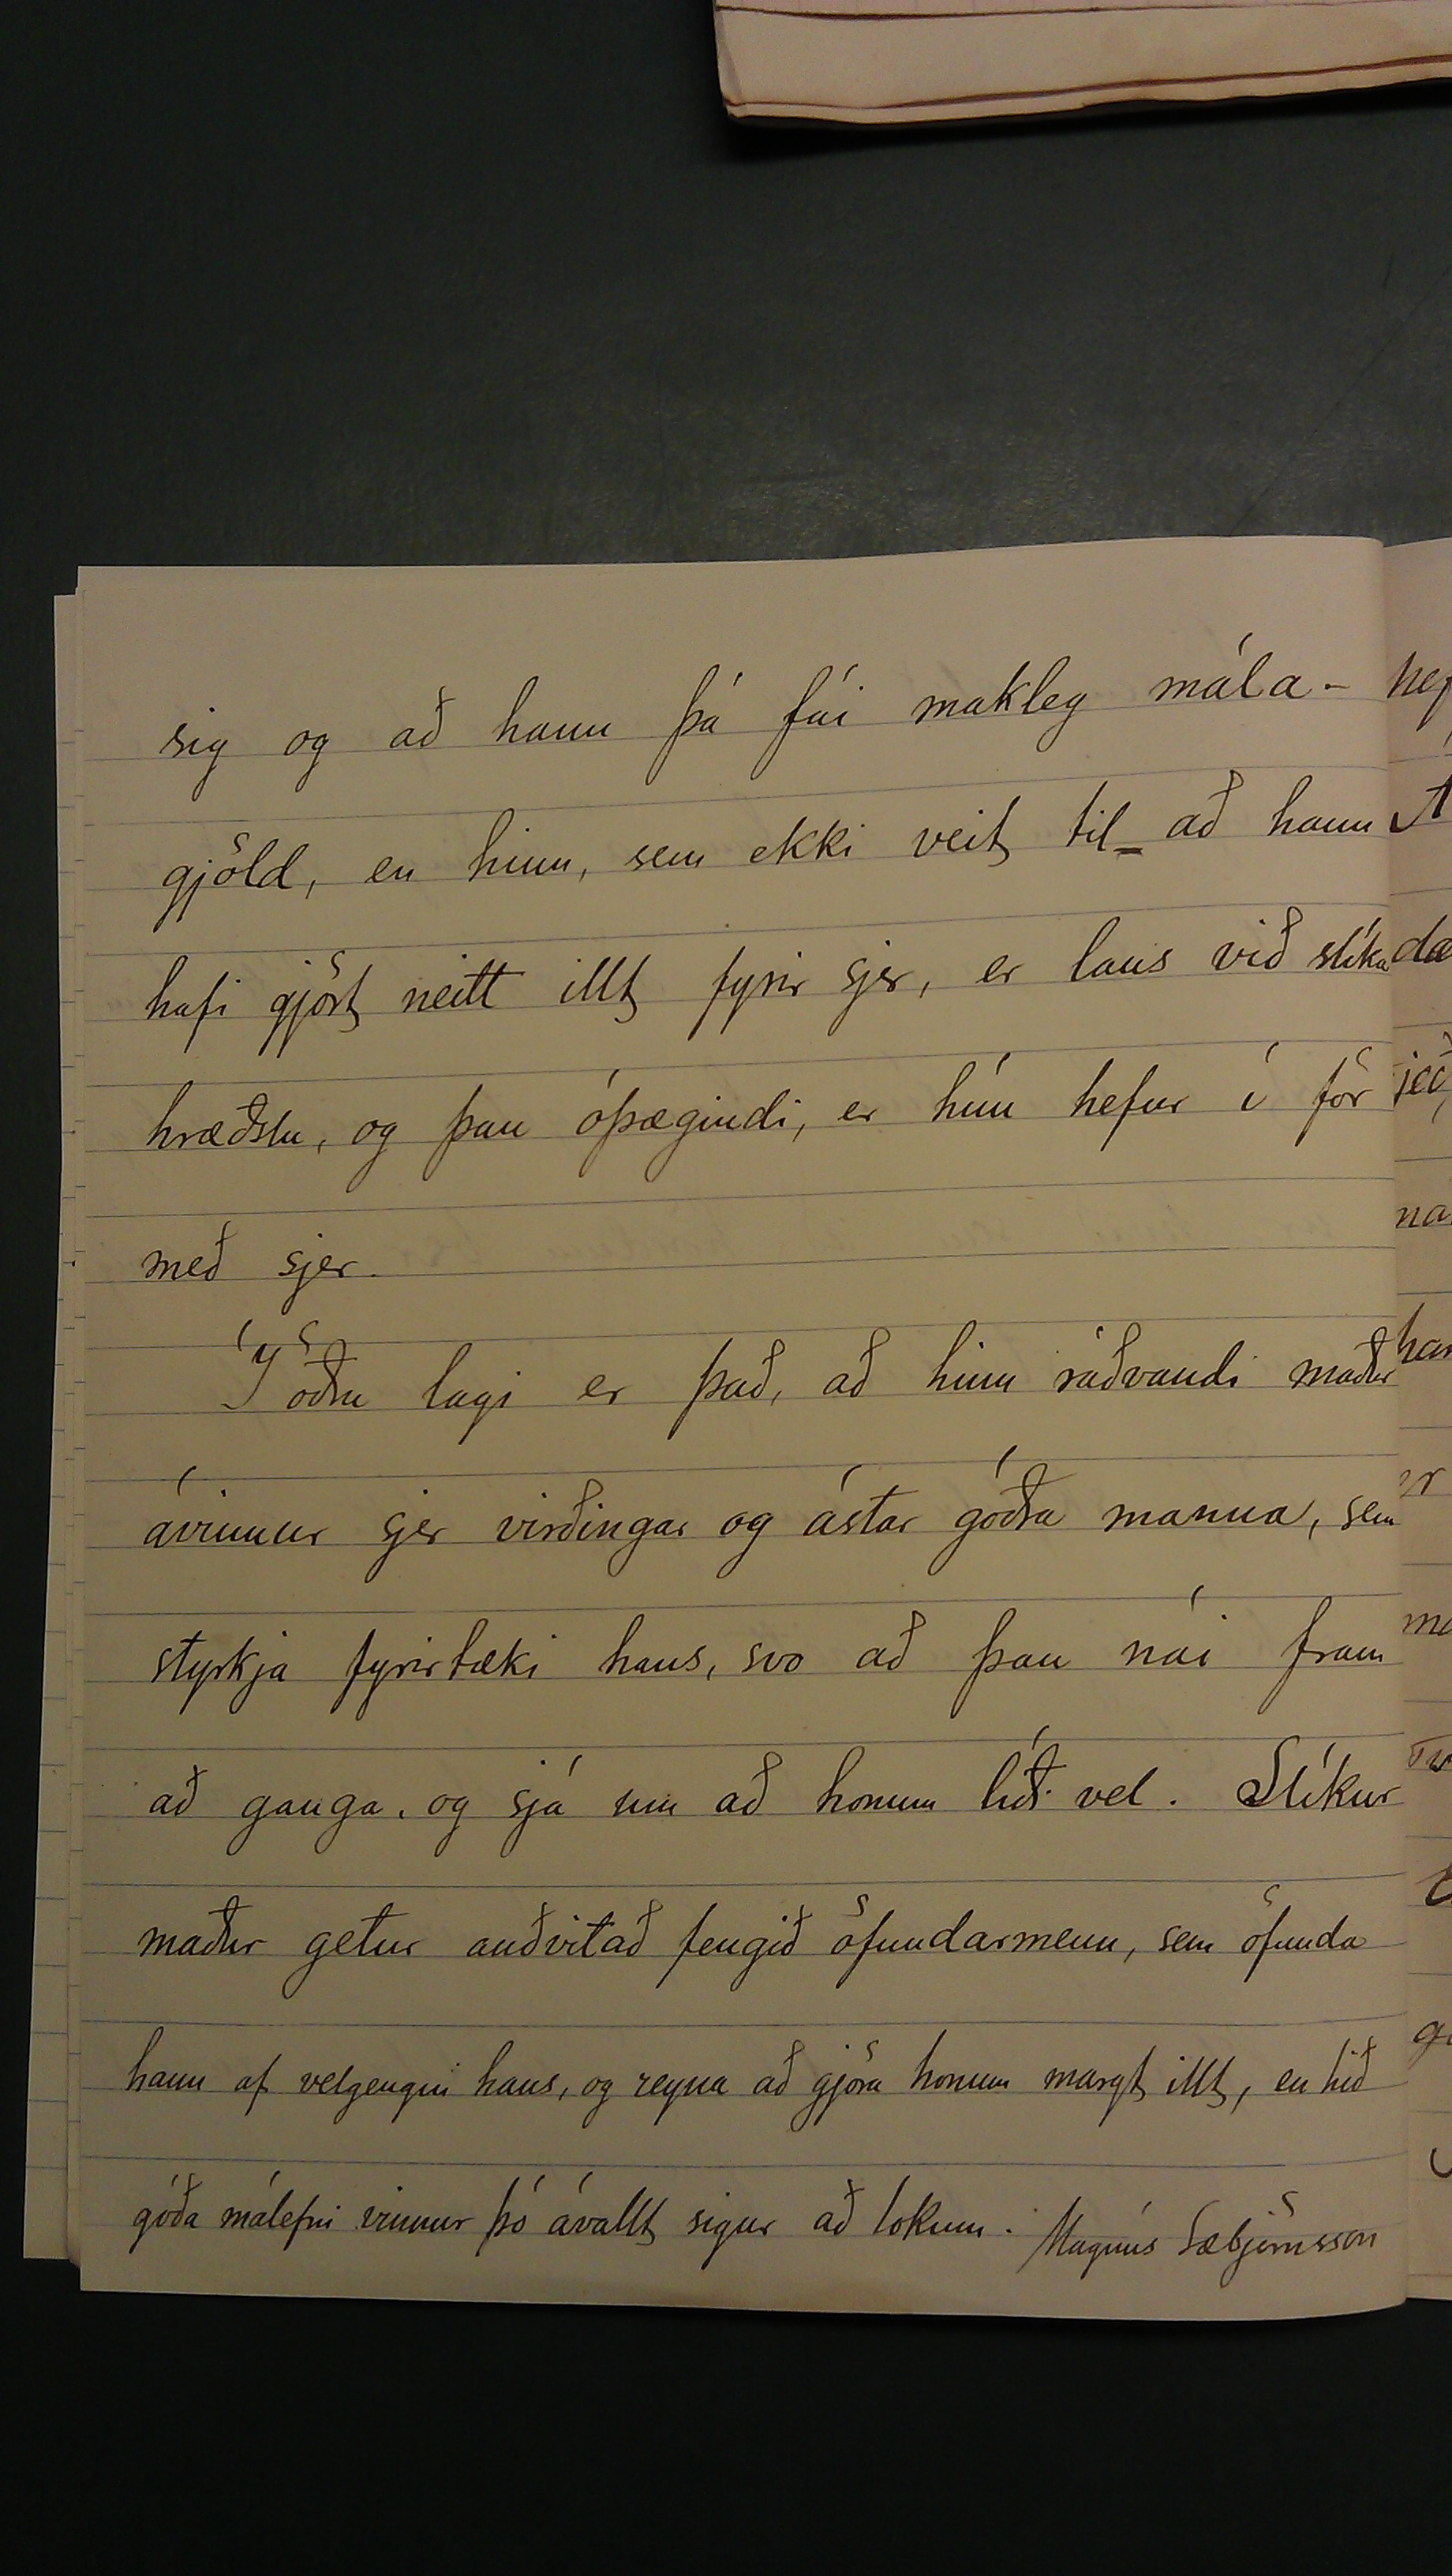 sig og að hann þá fái makleg mála-
gjöld, en hinn, sem ekki veit til að hann
hafi gjört neitt illt fyrir sjer, er laus við slíka
hræðslu, og þau óþægindi, er hún hefur í för
með sjer.
Í öðru lagi er það, að hinn ráðvandi maður
ávinnur sjer virðingar og ástar góðra manna, sem
styrkja fyrirtæki hans, svo að þau nái fram
að ganga, og sjá um að honum líði vel. Slíkur
maður getur auðvitað fengið öfundarmenn, sem öfunda
hann af velgengni hans, og reyna að gjöra honum margt illt, en hið
góða málefni vinnur þó ávallt sigur að lokum. Magnús Sæbjörnsson